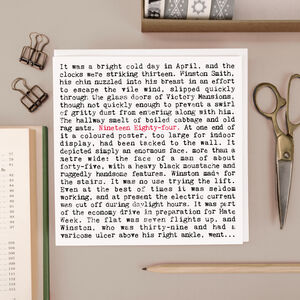 It was a bright cold day in April, and the
clocks were striking thirteen. Winston Smith,
his chin nuzzled into his breast in an effort
to escape the vile wind, slipped quickly
through the glass doors of Victory Mansions,
though not quickly enough to prevent a swirl
of gritty dust from entering along with him.
The hallway smelt of boiled cabbage and old
rag mats. Nineteen Eighty-four. At one end of
it a coloured poster, too large for indoor
display, had been tacked to the wall. It
depicted simply an enormous face, more than a
metre wide: the face of a man of about
forty-five, with a heavy black moustache and
ruggedly handsome features. Winston made for
the stairs. It was no use trying the lift.
Even at the best of times it was seldom
working, and at present the electric current
was cut off during daylight hours. It was part
of the economy drive in preparation for Hate
Week. The flat was seven flights up, and
Winston, who was thirty-nine and had a
varicose ulcer above his right ankle, went...